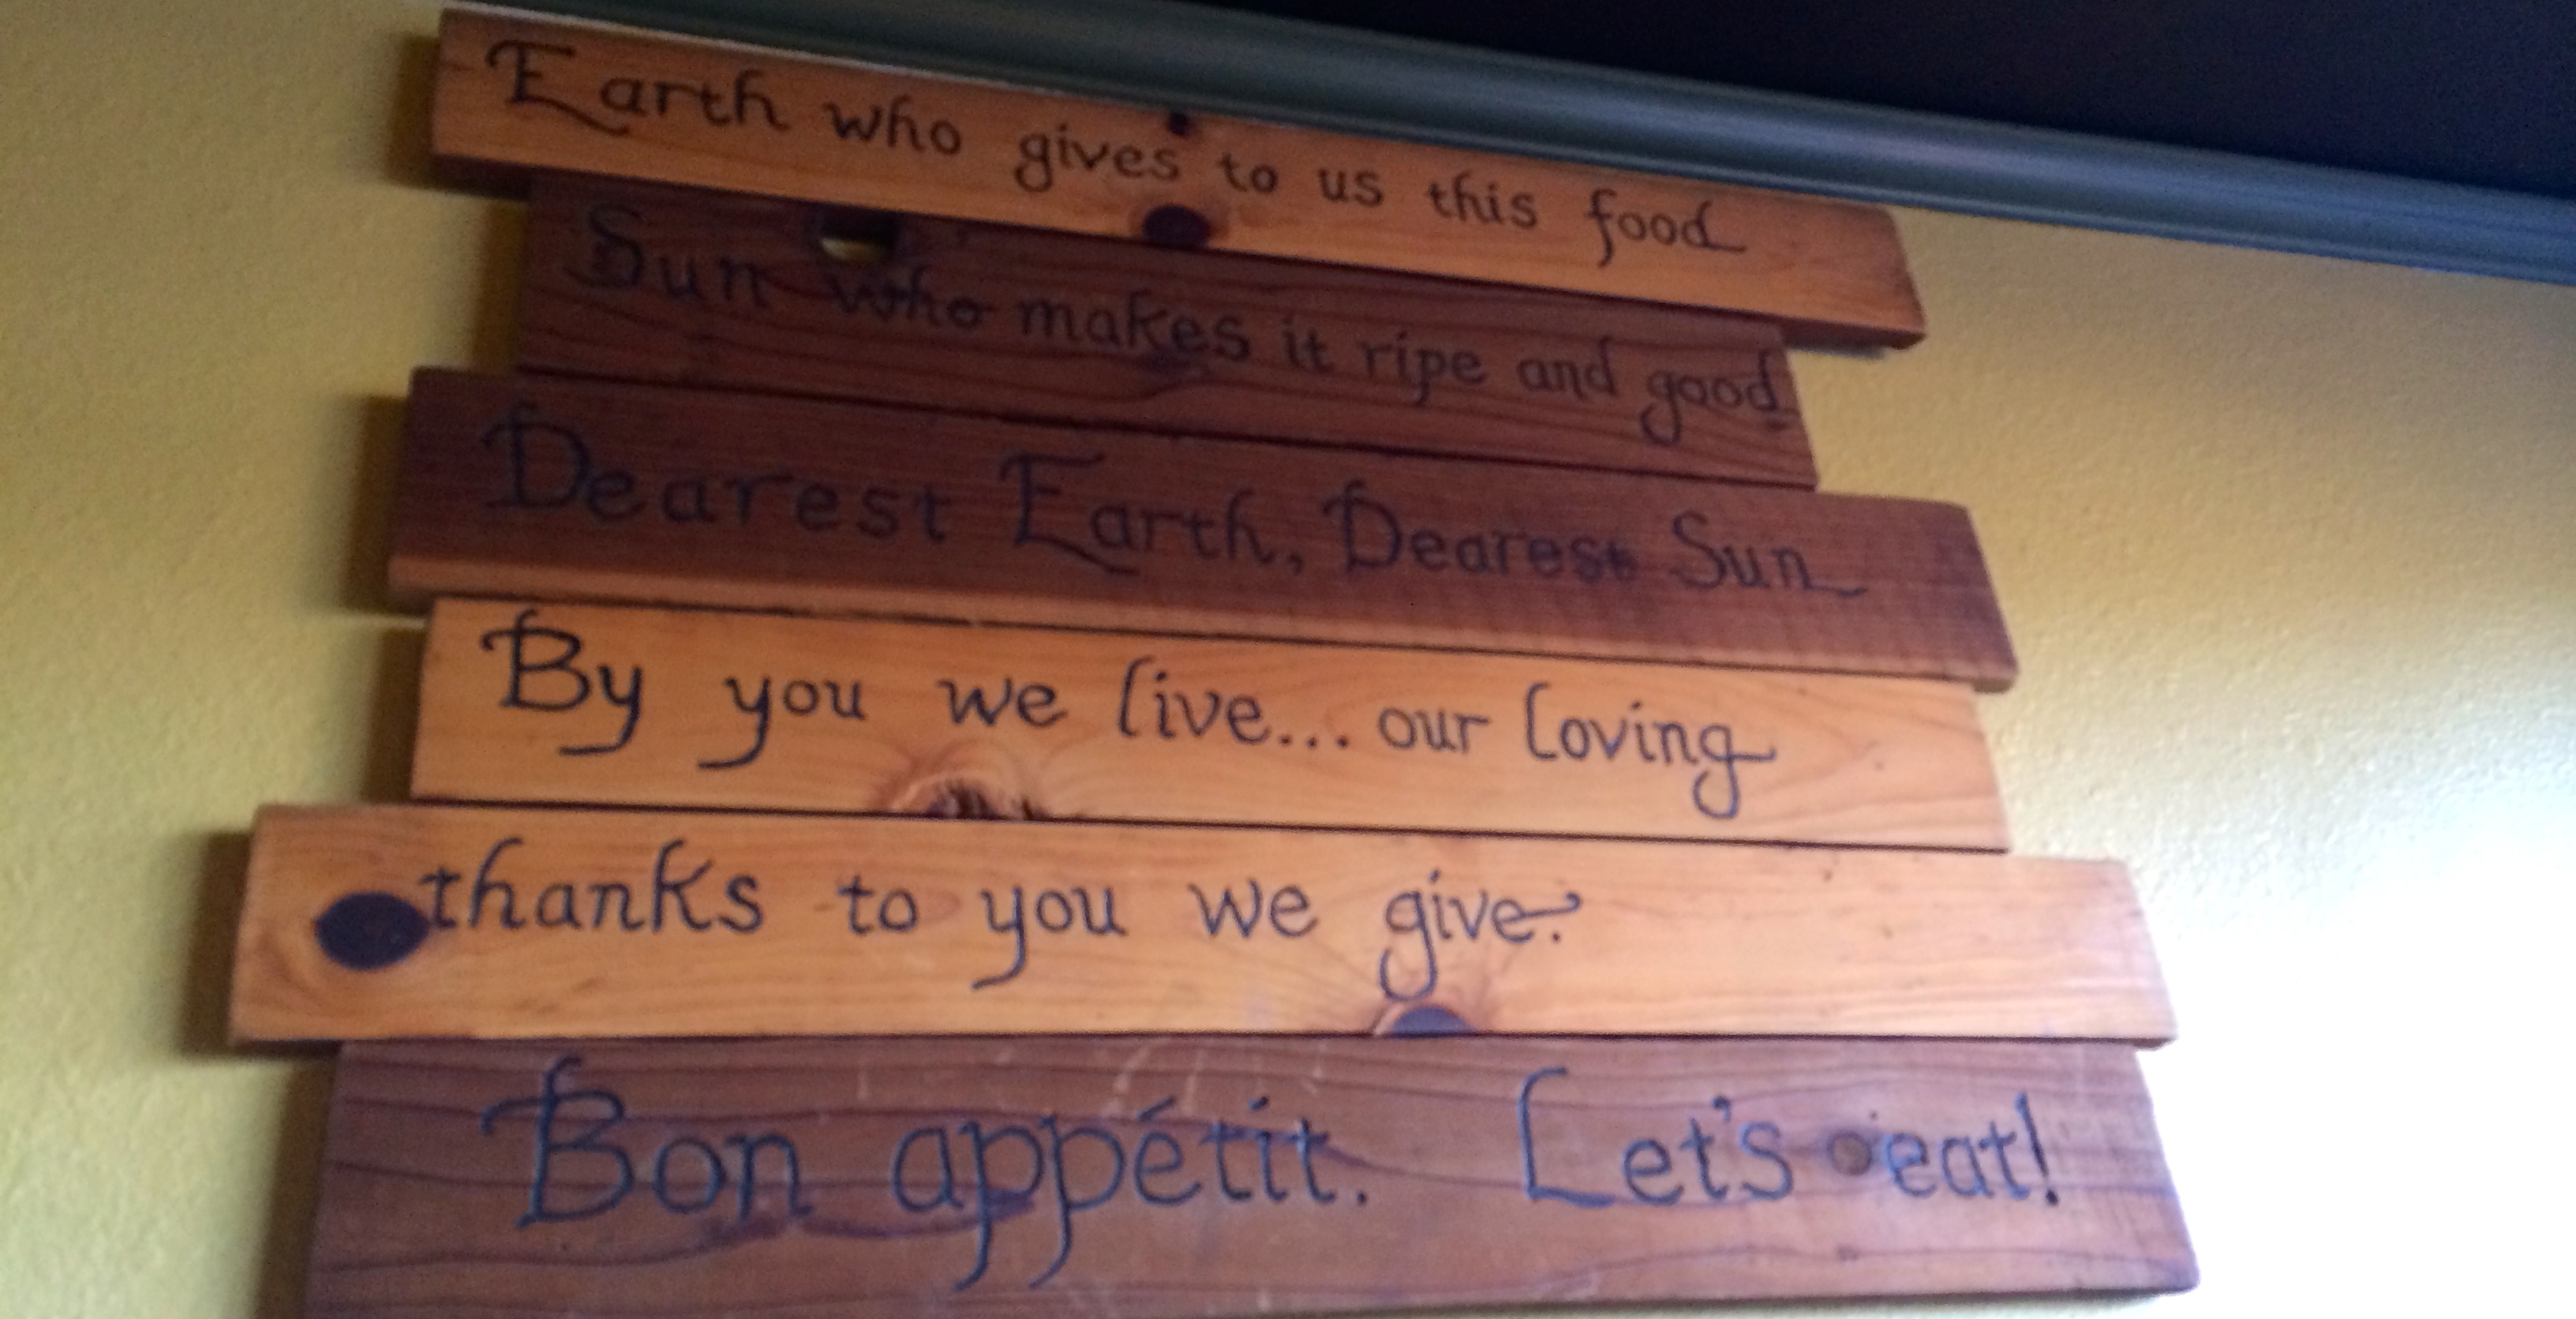 Earth who gives to us this food
Sun who makes it ripe and good
Dearest Earth, Dearest Sun
By you we live... our loving
thanks to you we give.
Bon appétit. Let's eat!